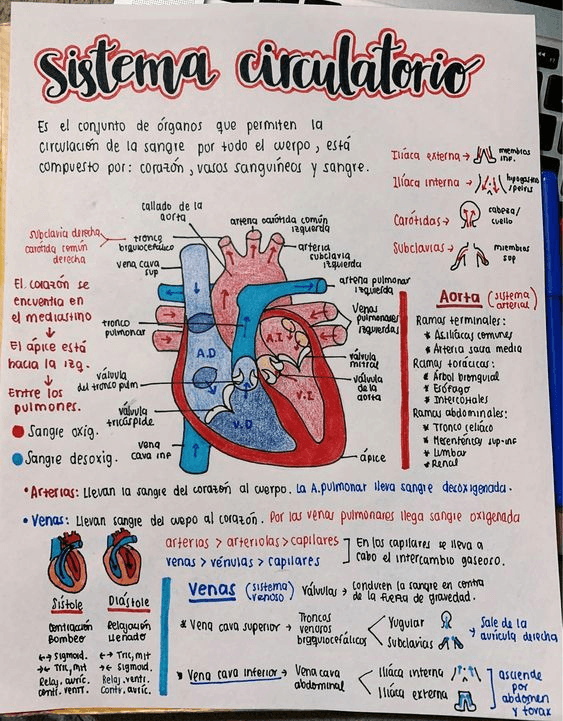 sistema circulatorio
Es el conjunto de órganos que permiten la
circulación de la sangre por todo el cuerpo, está
compuesto por: corazón, vasos sanguíneos y sangre.
Ilíaca externa → miembros inf.
Ilíaca interna → hipogastrio /pelvis
Carótidas → cabeza/ cuello
Subclavias → miembros sup
callado de la
aorta
arteria carótida común
izquierda
subclavia derecha
carótida común
derecha
tronco
braquiocefálico
arteria
subclavia
izquierda
vena cava
sup
arteria pulmonar
izquierda
Venas
pulmonares
izquierdas
tronco
pulmonar
válvula
mitral
válvula
del tronco pulm
válvula
de la
aorta
válvula
tricúspide
vena
cava inf
ápice
A.D
A.I
V.D
V.I
El corazón se
encuentra en
el mediastino
↓
El ápice está
hacia la izq.
↓
Entre los
pulmones.
Sangre oxig.
Sangre desoxig.
Aorta (sistema arterial)
Ramas terminales:
* As.ilíacas comunes
* Arteria sacra media
Ramas torácicas:
* Árbol bronquial
* Esófago
* Intercostales
Ramas abdominales:
* Tronco celíaco
* Mesentéricas sup-inf
* Lumbar
* Renal
• Arterias: Llevan la sangre del corazón al cuerpo. La A.pulmonar lleva sangre desoxigenada.
• Venas: Llevan sangre del cuepo al corazón. Por las venas pulmonares llega sangre oxigenada
arterias > arteriolas > capilares
venas > vénulas > capilares
En los capilares se lleva a
cabo el intercambio gaseoro.
Sístole
Contracción
Bombeo
←→ Sigmoid.
→← Tric, mit
Relaj. auríc.
contr. ventr.
Diástole
Relajación
Llenado
←→ Tric, mit
→← sigmoid.
Relaj. ventr.
Contr. auríc.
Venas (sistema venoso)
Válvulas → conducen la sangre en contra
de la fuerza de gravedad.
* Vena cava superior → Troncos
venosos
braquiocefálicos
Yugular
Subclavias
Sale de la
aurícula derecha
* Vena cava inferior → Vena cava
abdominal
Ilíaca interna
Ilíaca externa
asciende
por
abdomen
y torax